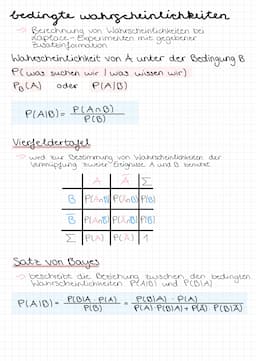 bedingte wahrscheinlichkeiten
→ Berechnung von Wahrscheinlichkeiten bei
Laplace-Experimenten mit gegebener
Zusatzinformation
Wahrscheinlichkeit von A unter der Bedingung B
P(was suchen wir | was wissen wir)
P_B(A) oder P(A|B)
P(A|B) = P(A∩B) / P(B)
Vierfeldertafel
→ wird zur Bestimmung von Wahrscheinlichkeiten der
Verknüpfung zweier Ereignisse A und B benutzt
A Ā Σ
B P(A∩B) P(Ā∩B) P(B)
B̄ P(A∩B̄) P(Ā∩B̄) P(B̄)
Σ P(A) P(Ā) 1
Satz von Bayes
→ beschreibt die Beziehung zwischen den bedingten
Wahrscheinlichkeiten P(A|B) und P(B|A)
P(A|B) = P(B|A · P(A) / P(B) = P(B|A) · P(A) / P(A) P(B|A) + P(Ā) · P(B|Ā)